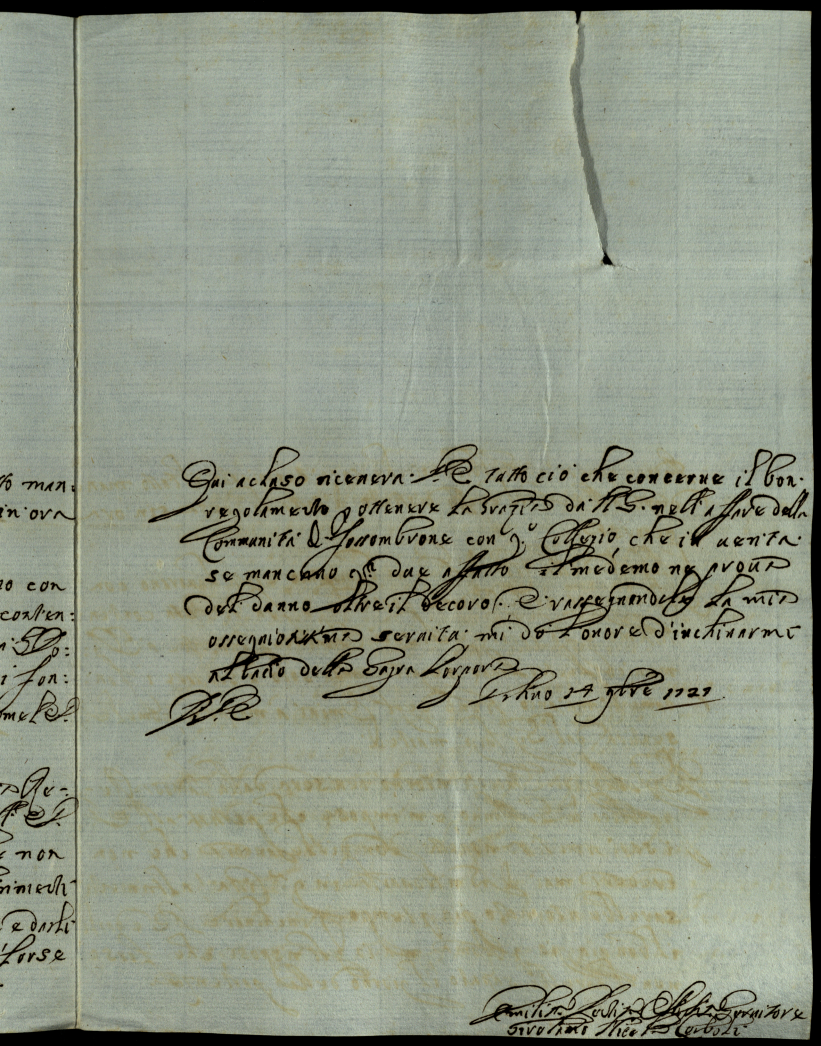 to man:
in ora
no con
conten:
i son:
e non
e darli
forse
Qui acluso riceuera V.E. tutto ciò che concerne il bon
regolamento p ottenere la grazia da N.S. nell affare della
Communità di Fossombrone con q.o Collegio che in uerità
se mancano q.ti due affatto il medemo ne proua
del danno oltre il decoro. E rassegnandole la mia
ossequiosissima seruitù mi dò l'onore d'inchinarmi
al bacio della Sagra Porpora
D.V.E. Urbino 14 9bre 1721
Umiliss. Seruitore
Girolamo Nicolò